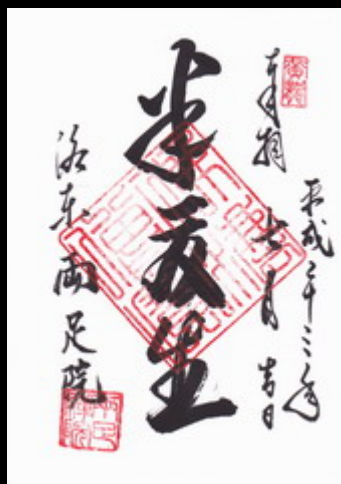 奉拝
平成二十三年
六月吉日
半夏生
洛東 両足院